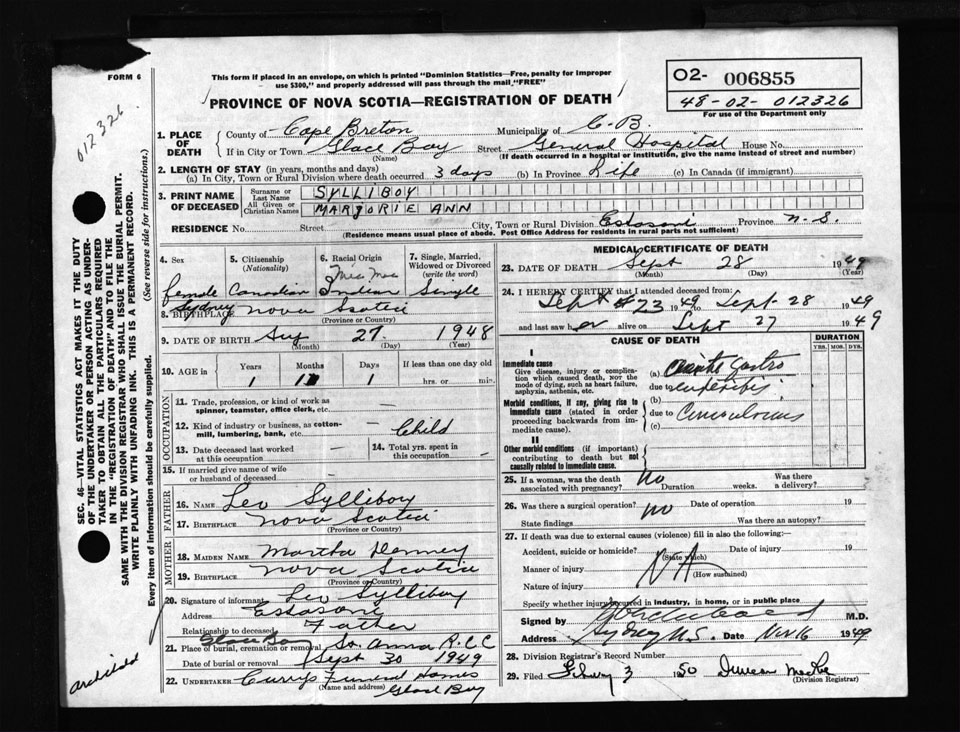 FORM 6
This form if placed in an envelope, on which is printed "Dominion Statistics—Free, penalty for improper
use $300," and properly addressed will pass through the mail "FREE"
O2- 006855
48-02-012326
For use of the Department only
PROVINCE OF NOVA SCOTIA—REGISTRATION OF DEATH
012326
1. PLACE OF DEATH
County of Cape Breton Municipality of C.B.
If in City or Town Glace Bay Street General Hospital House No.
(Name) (If death occurred in a hospital or institution, give the name instead of street and number)
2. LENGTH OF STAY (in years, months and days)
(a) In City, Town or Rural Division where death occurred 3 days (b) In Province Life (c) In Canada (if immigrant)
3. PRINT NAME OF DECEASED
Surname or Last Name SYLLIBOY
All Given or Christian Names MARJORIE ANN
RESIDENCE No. Street City, Town or Rural Division Eskasoni Province N.S.
(Residence means usual place of abode. Post Office Address for residents in rural parts not sufficient)
4. Sex female
5. Citizenship (Nationality) Canadian
6. Racial Origin Mic Mac Indian
7. Single, Married, Widowed or Divorced (write the word) Single
8. BIRTHPLACE Sydney Nova Scotia
(Province or Country)
9. DATE OF BIRTH Aug 27. 1948
(Month) (Day) (Year)
10. AGE in Years Months Days If less than one day old
1 1 1 hrs. or min.
OCCUPATION
11. Trade, profession, or kind of work as
spinner, teamster, office clerk, etc. —
12. Kind of industry or business, as cotton-
mill, lumbering, bank, etc. — Child
13. Date deceased last worked
at this occupation —
14. Total yrs. spent in
this occupation —
15. If married give name of wife
or husband of deceased —
FATHER
16. NAME Leo Sylliboy
17. BIRTHPLACE Nova Scotia
(Province or Country)
MOTHER
18. MAIDEN NAME Martha Denney
19. BIRTHPLACE Nova Scotia
(Province or Country)
20. Signature of informant Leo Sylliboy
Address Eskasoni
Relationship to deceased Father
Glace Bay
21. Place of burial, cremation or removal St. Anns R.C.C
Date of burial or removal Sept 30 1949
22. UNDERTAKER Currys Funeral Homes
(Name and address) Glace Bay
MEDICAL CERTIFICATE OF DEATH
23. DATE OF DEATH Sept 28 1949
(Month) (Day) (Year)
24. I HEREBY CERTIFY that I attended deceased from:
Sept 23 1949 to Sept 28 1949
and last saw her alive on Sept 27 1949
CAUSE OF DEATH
DURATION
YRS. MOS. DYS.
I
Immediate cause
Give disease, injury or complica-
tion which caused death, not the
mode of dying, such as heart failure,
asphyxia, asthenia, etc.
(a) Gastro
due to
Morbid conditions, if any, giving rise to
immediate cause (stated in order
proceeding backwards from im-
mediate cause).
due to
(c)
II
Other morbid conditions (if important)
contributing to death but not
causally related to immediate cause.
25. If a woman, was the death
associated with pregnancy? No Duration weeks. Was there
a delivery?
26. Was there a surgical operation? No Date of operation 19
State findings Was there an autopsy?
27. If death was due to external causes (violence) fill in also the following:—
Accident, suicide or homicide? Date of injury 19
(State which)
Manner of injury NA
(How sustained)
Nature of injury
Specify whether injury occurred in industry, in home, or in public place
Signed by M.D.
Address Sydney N.S. Date Nov 16 1949
28. Division Registrar's Record Number
29. Filed 3 1950 Duncan
(Division Registrar)
SEC. 46—VITAL STATISTICS ACT MAKES IT THE DUTY
OF THE UNDERTAKER OR PERSON ACTING AS UNDER-
TAKER TO OBTAIN ALL THE PARTICULARS REQUIRED
IN THE "REGISTRATION OF DEATH" AND TO FILE THE
SAME WITH THE DIVISION REGISTRAR WHO SHALL ISSUE THE BURIAL PERMIT.
WRITE PLAINLY WITH UNFADING INK. THIS IS A PERMANENT RECORD.
Every item of information should be carefully supplied. (See reverse side for instructions.)